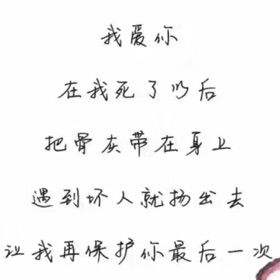 我爱你
在我死了以后
把骨灰带在身上
遇到坏人就扬出去
让我再保护你最后一次